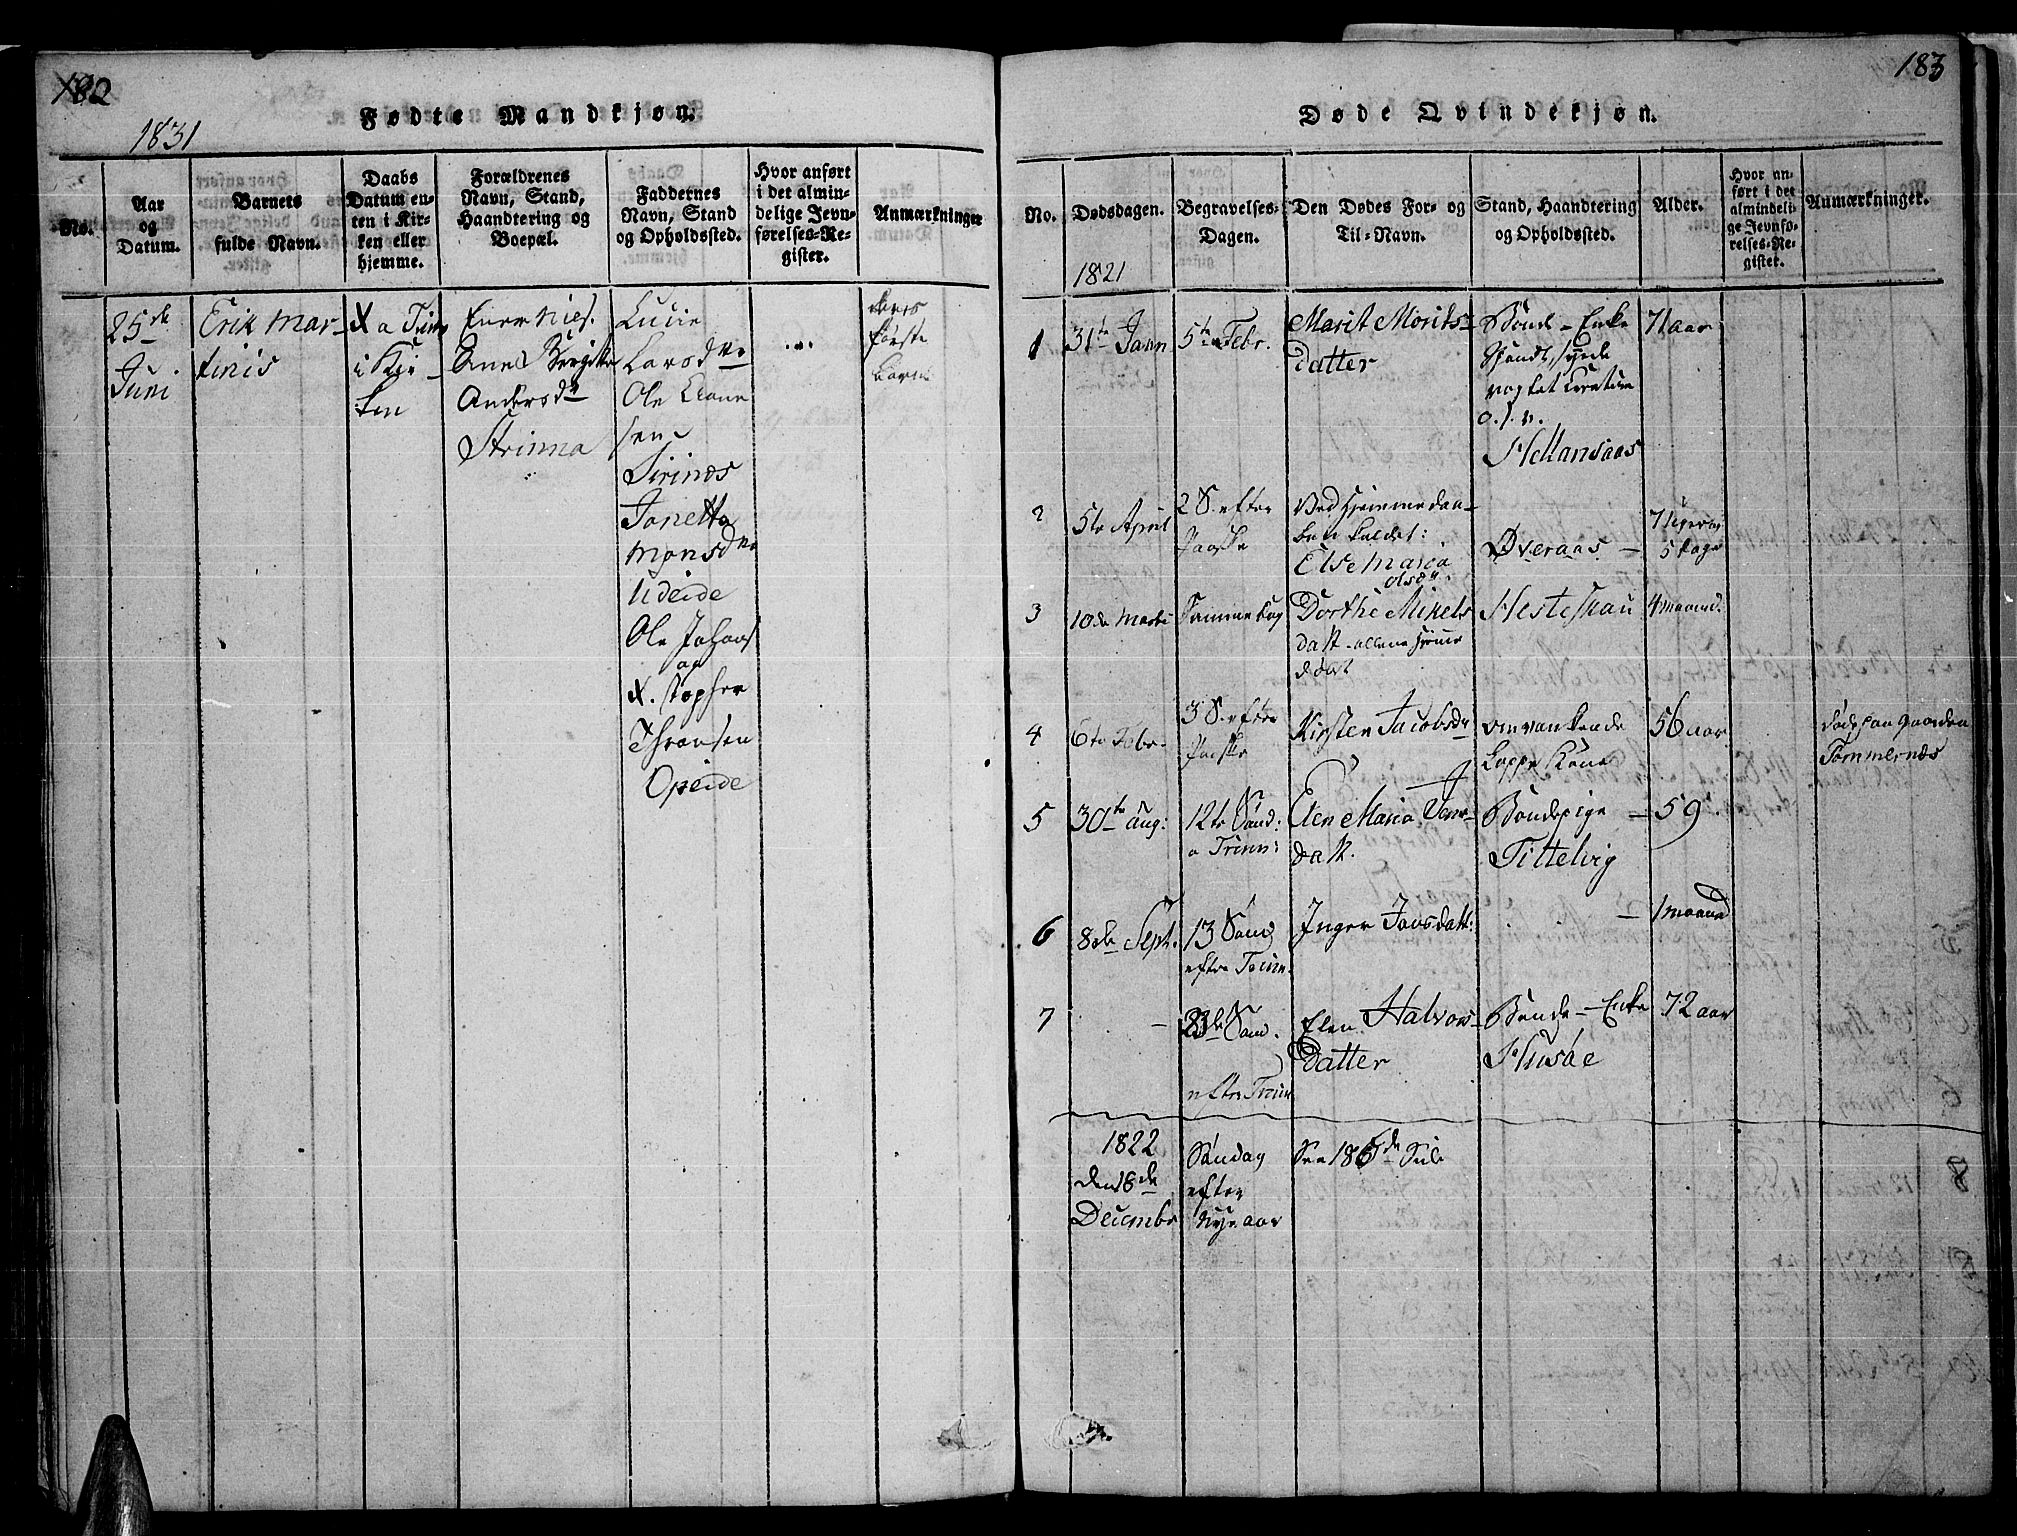 182
1831
Fødte Mandkjøn.
No.
Aar
og
Datum.
Barnets
fulde Navn.
Daabs
Datum en-
ten i Kir-
ken eller
hjemme.
Forældrenes
Navn, Stand,
Haandtering og
Boepæl.
Faddernes
Navn, Stand
og Opholdssted.
Hvor anført
i det almin-
delige Jevn-
førelses-Re-
gister.
Anmærkninger
25de
Juni
Erik Mar-
tinis
X a Trin
i Kir-
ken
Niels.
Ane Birgitte
Andersdr
Strinna
Lucie
Larsdr
Ole
sen
Sirinæs
Jonetta
Monsdr
Udeide
Ole Johans
og
X.stopher
Thronsen
Opeide
deres
første
barn
183
Døde Qvindekjøn.
No.
Dødsdagen.
Begravelses-
Dagen.
Den Dødes For- og
Til-Navn.
Stand, Haandtering
og Opholdssted.
Alder.
Hvor an-
ført i det
almindeli-
ge Jevnfø-
relses-Re-
gister.
Anmærkninger.
1821
1
31te Jann
5te Febr.
Marit Morits-
datter
Bonde-Enke
o.s.v.
Hellansaas
71 aar
2
5te April
2 S. efter
Paaske
Ved Hjemmedaa-
ben kaldet:
Else Maria
Olsdr.
Øveraas
7 Uger og
5 dage
3
10de Marti
Samme dag
Dorthe Mikels
datt.
død
Hesteskau
4 maand.
4
6te Febr.
3 S. efter
Paaske
Kirsten Jacobsdr
omvankende
Lappe Kone
56 aar
døde paa Gaarden
Tømmernæs
5
30te Aug:
12te Sønd:
a Trin:
Elen Maria Jens-
datt.
Bondepige
Tittelvig
59
6
8de Sept.
13 Sønd
efter Trin.
Inger
1 maaned
7
Sønd.
efter Trin
Elen Halvors-
datter
Bonde-Enke
Husøe
72 aar
1822
den 18de
Decembr
Søndag
efter
Nytaar
See 186de Side